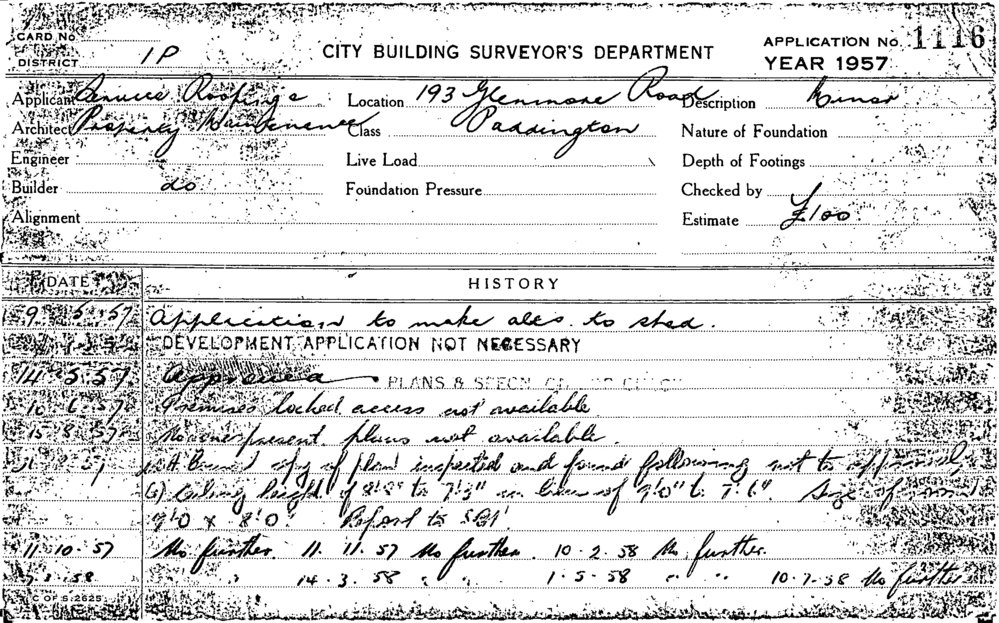 CARD No.
DISTRICT 1P
CITY BUILDING SURVEYOR'S DEPARTMENT
APPLICATION No. 1116
YEAR 1957
Applicant Roofings Location 193 Glenmore Road Description Minor
Architect Property Maintenance Class Paddington Nature of Foundation
Engineer Live Load Depth of Footings
Builder do Foundation Pressure Checked by
Alignment Estimate £100
DATE HISTORY
9. 5. 57 Application to make alts. to shed.
DEVELOPMENT APPLICATION NOT NECESSARY
14. 5. 57 Approved PLANS & SPECN.
10. 6. 57 Premises locked access not available
15. 8. 57 No one present. plans not available.
copy of plan inspected and found following not to
Ceiling height of to 7'3" in lieu of 9'0" to 7'6". Size of
9'0 x 8'0". Report to
11. 10. 57 No further. 11. 11. 57 No further. 10. 2. 58 No further.
58 " 14. 3. 58 " " 1. 5. 58 " " 10. 7. 58 No further
C OF S 2625